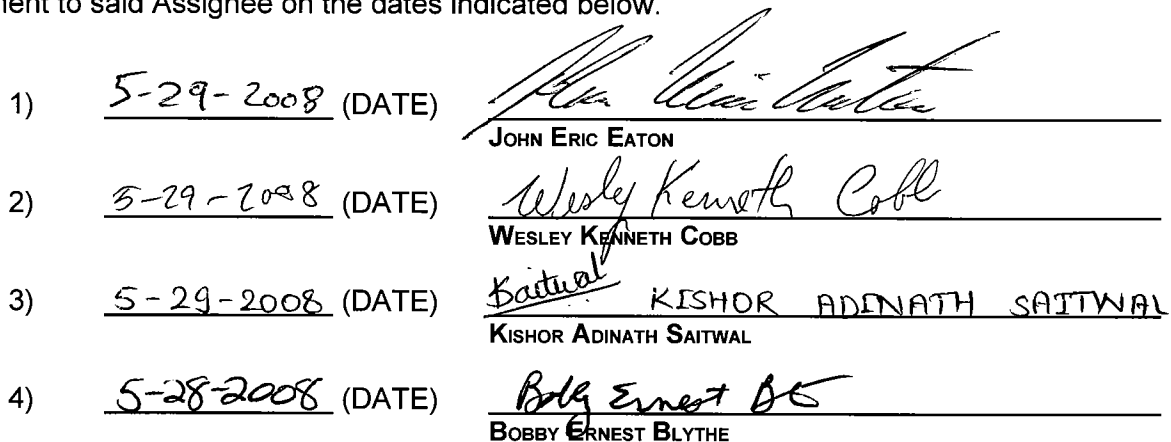 nent to said Assignee on the dates indicated below.
1) 5-29-2008 (DATE) John Eric Eaton
JOHN ERIC EATON
2) 5-29-2008 (DATE) Wesley Kenneth Cobb
WESLEY KENNETH COBB
3) 5-29-2008 (DATE) Saitwal KISHOR ADINATH SAITWAL
KISHOR ADINATH SAITWAL
4) 5-28-2008 (DATE) Bobby Ernest
BOBBY ERNEST BLYTHE